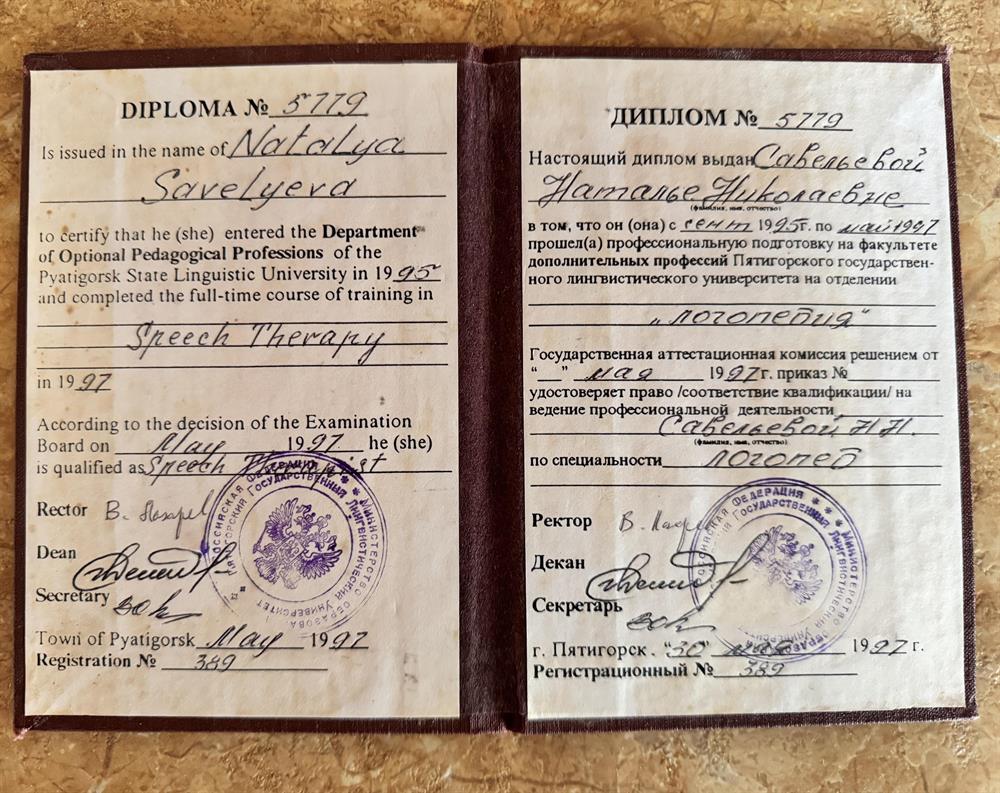 DIPLOMA № 5779
Is issued in the name of Natalya
Savelyeva
to certify that he (she) entered the Department
of Optional Pedagogical Professions of the
Pyatigorsk State Linguistic University in 1995
and completed the full-time course of training in
Speech Therapy
in 1997
According to the decision of the Examination
Board on May 1997 he (she)
is qualified as Speech Therapist
Rector В.
Dean
Secretary
Town of Pyatigorsk May 1997
Registration № 389
РОССИЙСКАЯ ФЕДЕРАЦИЯ ✱ МИНИСТЕРСТВО ОБРАЗОВА
ПЯТИГОРСКИЙ ГОСУДАРСТВЕННЫЙ ЛИНГВИСТИЧЕСКИЙ УНИВЕРСИТЕТ
ДИПЛОМ № 5779
Настоящий диплом выдан Савельевой
Наталье Николаевне
(фамилия, имя, отчество)
в том, что он (она) с сент 1995г. по май 1997
прошел(а) профессиональную подготовку на факультете
дополнительных профессий Пятигорского государствен-
ного лингвистического университета на отделении
„логопедия“
Государственная аттестационная комиссия решением от
“__” мая 1997г. приказ №
удостоверяет право /соответствие квалификации/ на
ведение профессиональной деятельности
Савельевой Н Н.
(фамилия, имя, отчество)
по специальности логопед
Ректор В.
Декан
Секретарь
г. Пятигорск. "30" мая 1997 г.
Регистрационный № 389
РОССИЙСКАЯ ФЕДЕРАЦИЯ ✱ МИНИСТЕРСТВО ОБРАЗОВА
ГОСУДАРСТВЕННЫЙ ЛИНГВИСТИЧЕСКИЙ УНИВЕРСИТЕТ